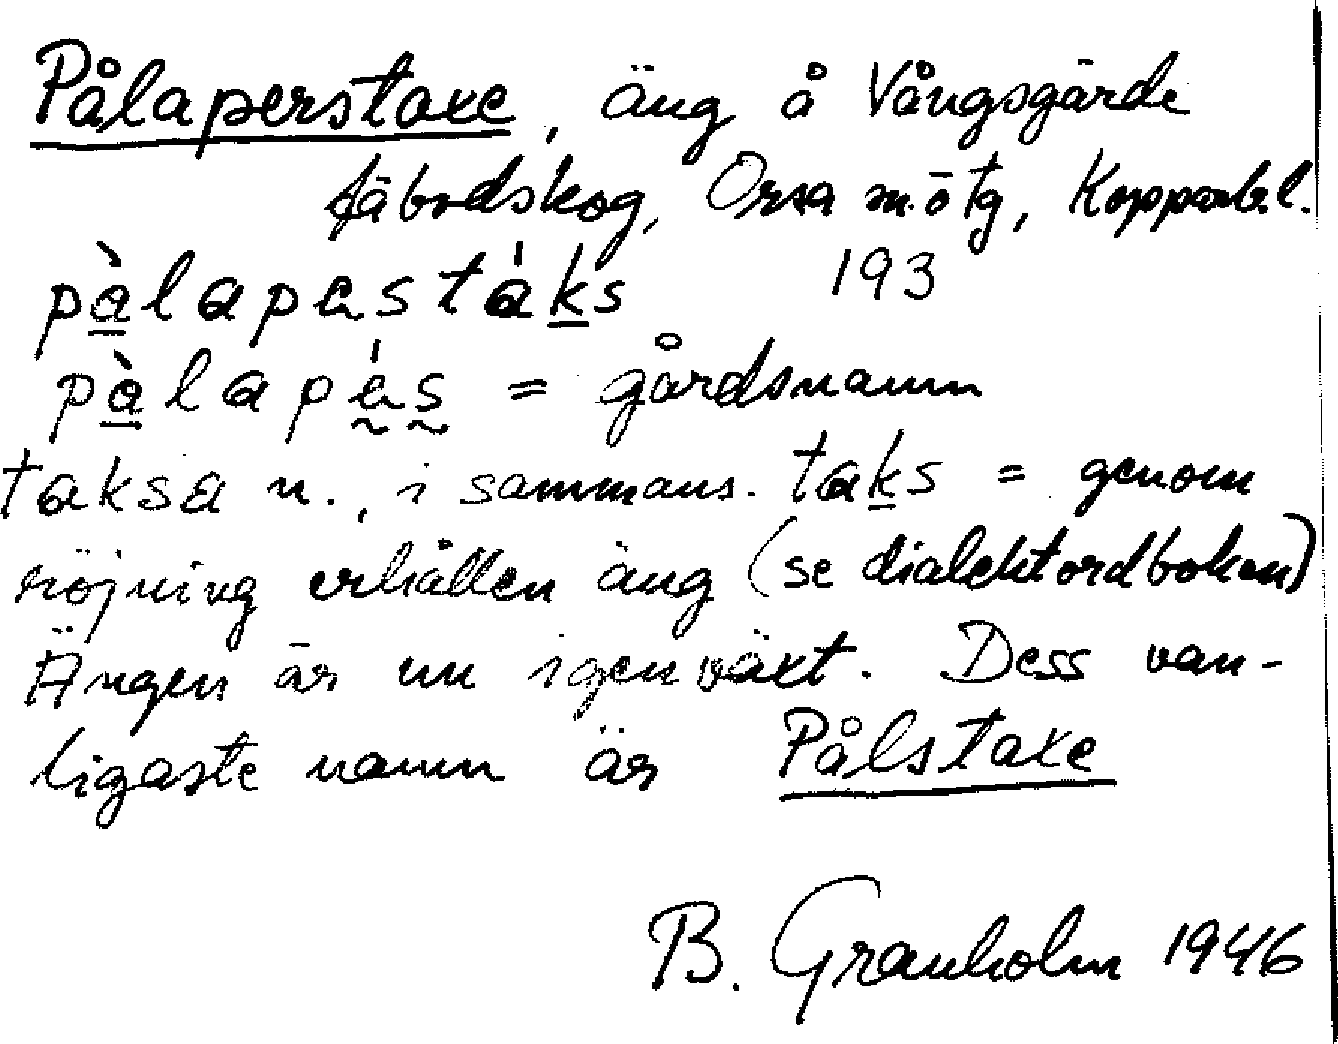 Pålaperstaxe, äng å Vångsgärde
fäbodskog, Orsa m. o tg, Kopparb. l.
pàlapastáks 193
pàlapás = gårdsnamn
taksa n., i sammans. taks = genom
röjning erhållen äng (se dialektordboken)
Ängen är nu igenväxt. Dess van-
ligaste namn är Pålstaxe
B. Granholm 1946